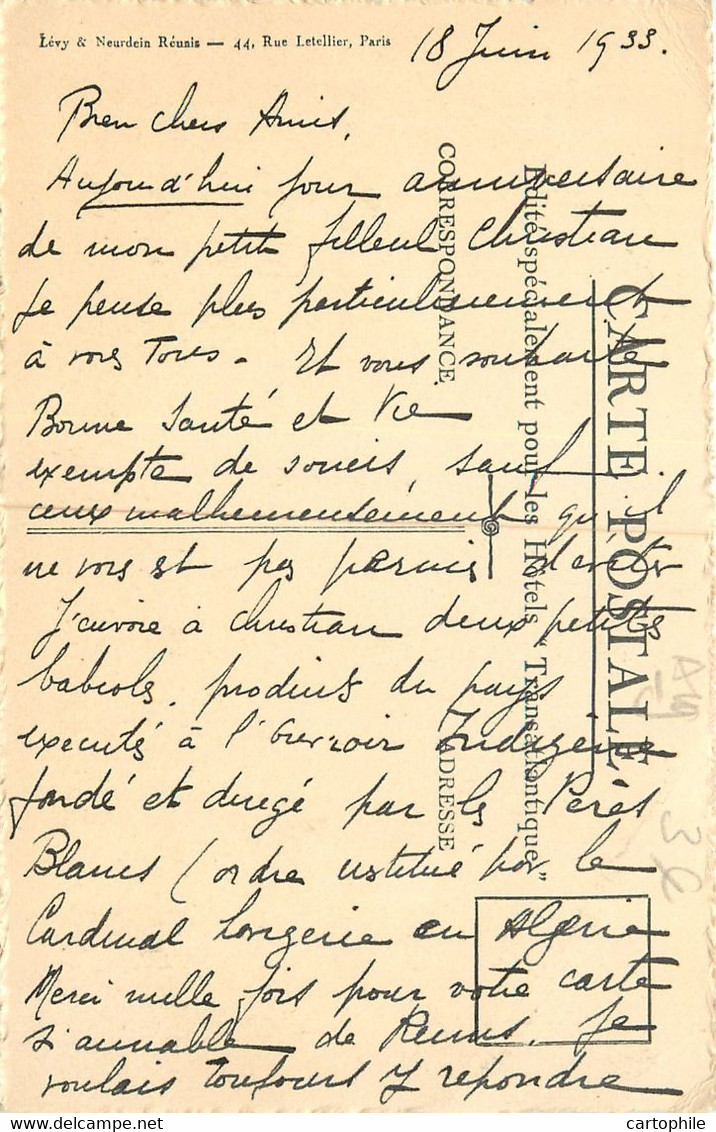 Lévy & Neurdein Réunis — 44, Rue Letellier, Paris
18 Juin 1933.
Bien chers Amis,
Aujourd'hui jour anniversaire
de mon petit filleul Christian
je pense plus particulièrement
à vous Tous - Et vous souhaite
Bonne Santé et Vie
exempte de soucis, sauf
ceux malheureusement qu'il
ne vous est pas permis d'eviter
J'envoie à Christian deux petites
babioles, produits du pays
executés à l'Ouvroir Indigène
fondé et dirigé par les Pères
Blancs (ordre institué par le
Cardinal Lavigerie en Algerie
Merci mille fois pour votre carte
si aimable de Reims. Je
voulais toujours y repondre
CARTE POSTALE
Edité spécialement pour les Hôtels "Transatlantique"
CORRESPONDANCE
ADRESSE
Alg
3€
cartophilie.com